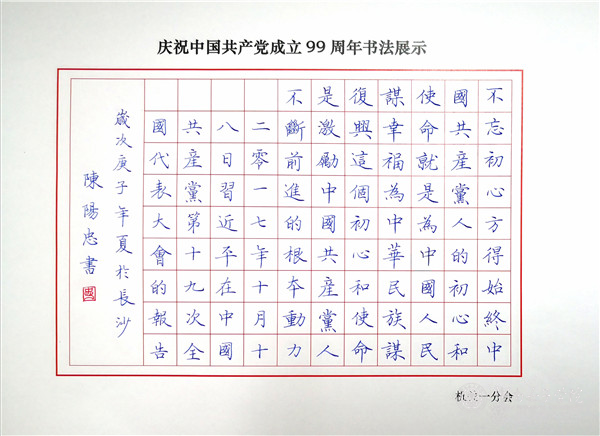 庆祝中国共产党成立99周年书法展示
不忘初心方得始終中
國共產黨人的初心和
使命就是為中國人民
謀幸福為中華民族謀
復興這個初心和使命
是激勵中國共產黨人
不斷前進的根本動力
二零一七年十月十
八日習近平在中國
共產黨第十九次全
國代表大會的報告
歲次庚子年夏於長沙
陳陽忠書
一分会